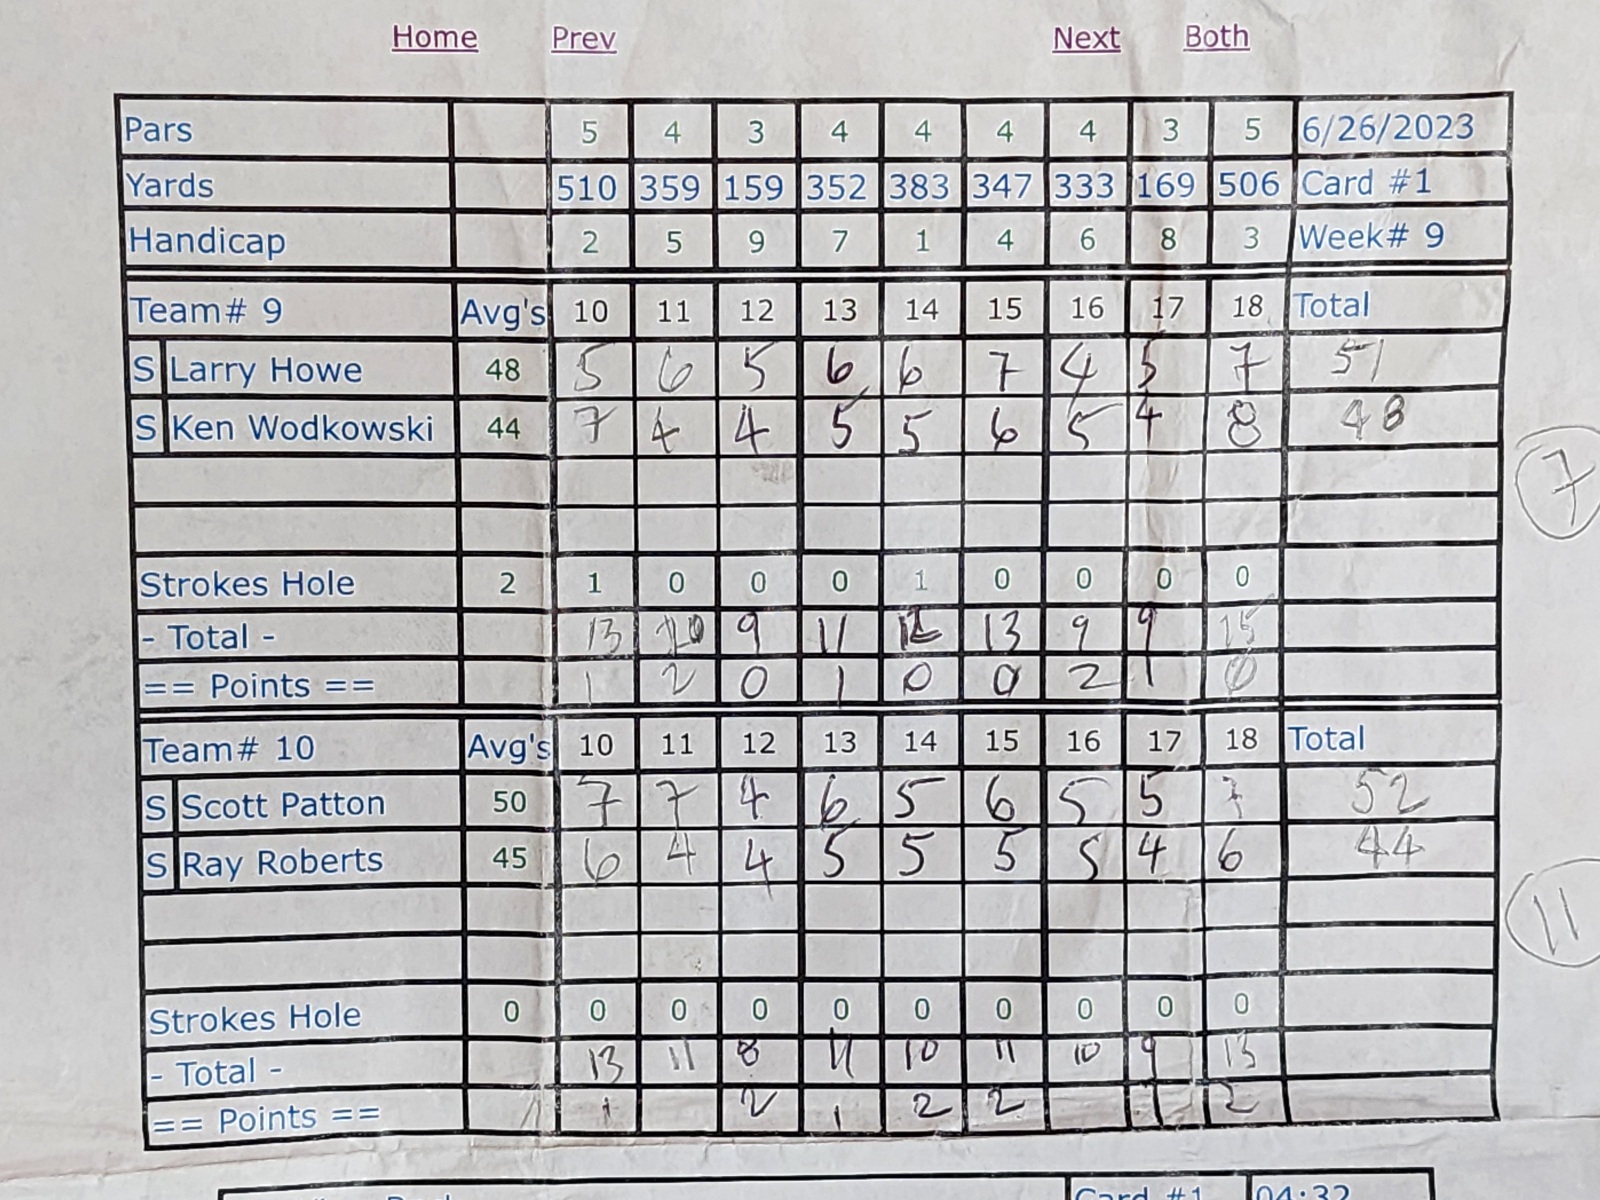 Home Prev Next Both
Pars 5 4 3 4 4 4 4 3 5 6/26/2023
Yards 510 359 159 352 383 347 333 169 506 Card #1
Handicap 2 5 9 7 1 4 6 8 3 Week# 9
Team# 9 Avg's 10 11 12 13 14 15 16 17 18 Total
S Larry Howe 48 5 6 5 6 6 7 4 5 7 51
S Ken Wodkowski 44 7 4 4 5 5 6 5 4 8 48
7
Strokes Hole 2 1 0 0 0 1 0 0 0 0
- Total - 13 10 9 11 12 13 9 9 15
== Points == 1 2 0 1 0 0 2 1 0
Team# 10 Avg's 10 11 12 13 14 15 16 17 18 Total
S Scott Patton 50 7 7 4 6 5 6 5 5 7 52
S Ray Roberts 45 6 4 4 5 5 5 5 4 6 44
11
Strokes Hole 0 0 0 0 0 0 0 0 0 0
- Total - 13 11 8 11 10 11 10 9 13
== Points == 1 2 1 2 2 1 2
Card #1 04:32